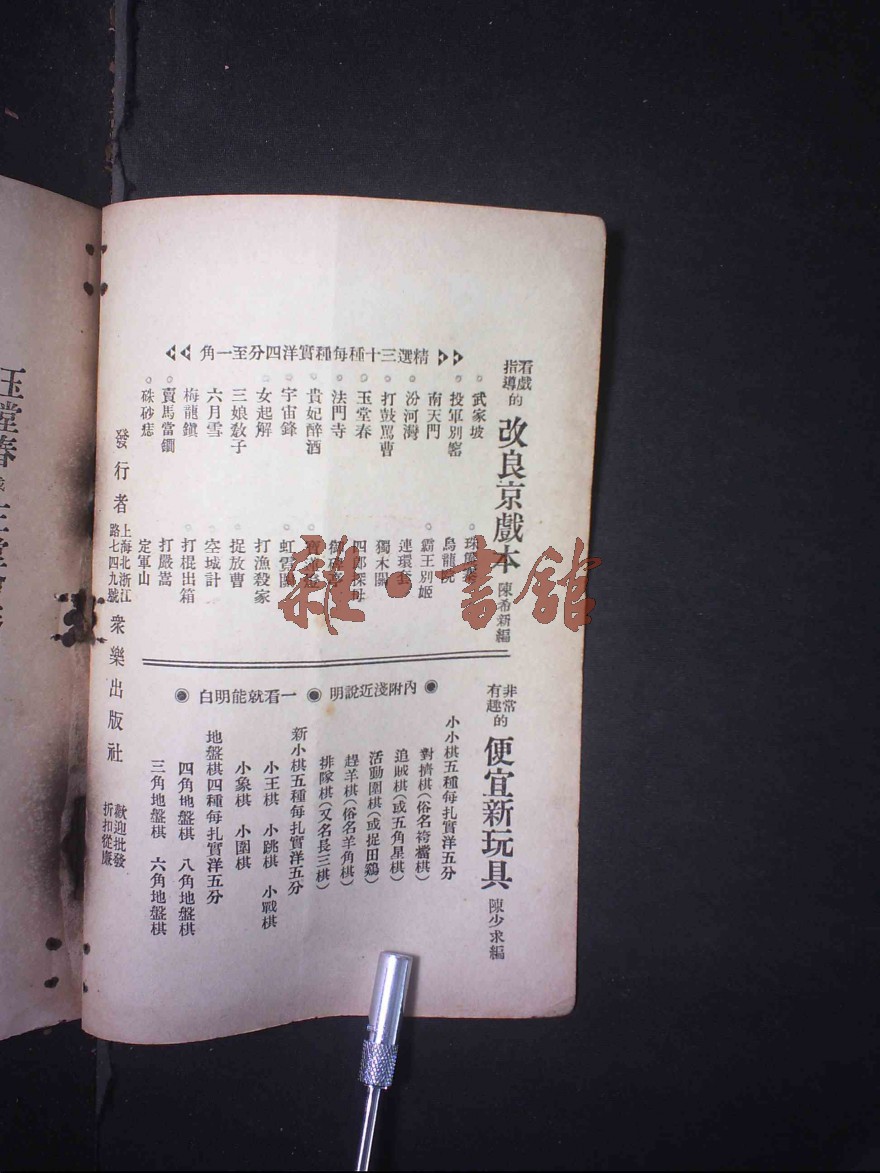 看戲指導的 改良京戲本 陳希新編
精選三十種每種實洋四分至一角
武家坡
投軍別窰
南天門
汾河灣
打鼓罵曹
玉堂春
法門寺
貴妃醉酒
宇宙鋒
女起解
三娘敎子
六月雪
梅龍鎮
賣馬當鐧
硃砂痣
珠簾寨
烏龍院
霸王別姬
連環套
獨木關
四郎探母
御碑亭
寶蓮燈
虹霓關
打漁殺家
捉放曹
空城計
打棍出箱
打嚴嵩
定軍山
非常有趣的 便宜新玩具 陳少求編
內附淺近說明 一看就能明白
小小棋五種每扎實洋五分
對擠棋(俗名袴襠棋)
追賊棋(或五角星棋)
活動圍棋(或捉田鷄)
趕羊棋(俗名羊角棋)
排隊棋(又名長三棋)
新小棋五種每扎實洋五分
小王棋 小跳棋 小戰棋
小象棋 小圍棋
地盤棋四種每扎實洋五分
四角地盤棋 八角地盤棋
三角地盤棋 六角地盤棋
發行者 上海北浙江路七四九號 衆樂出版社 歡迎批發折扣從廉
雜·書館
玉堂春